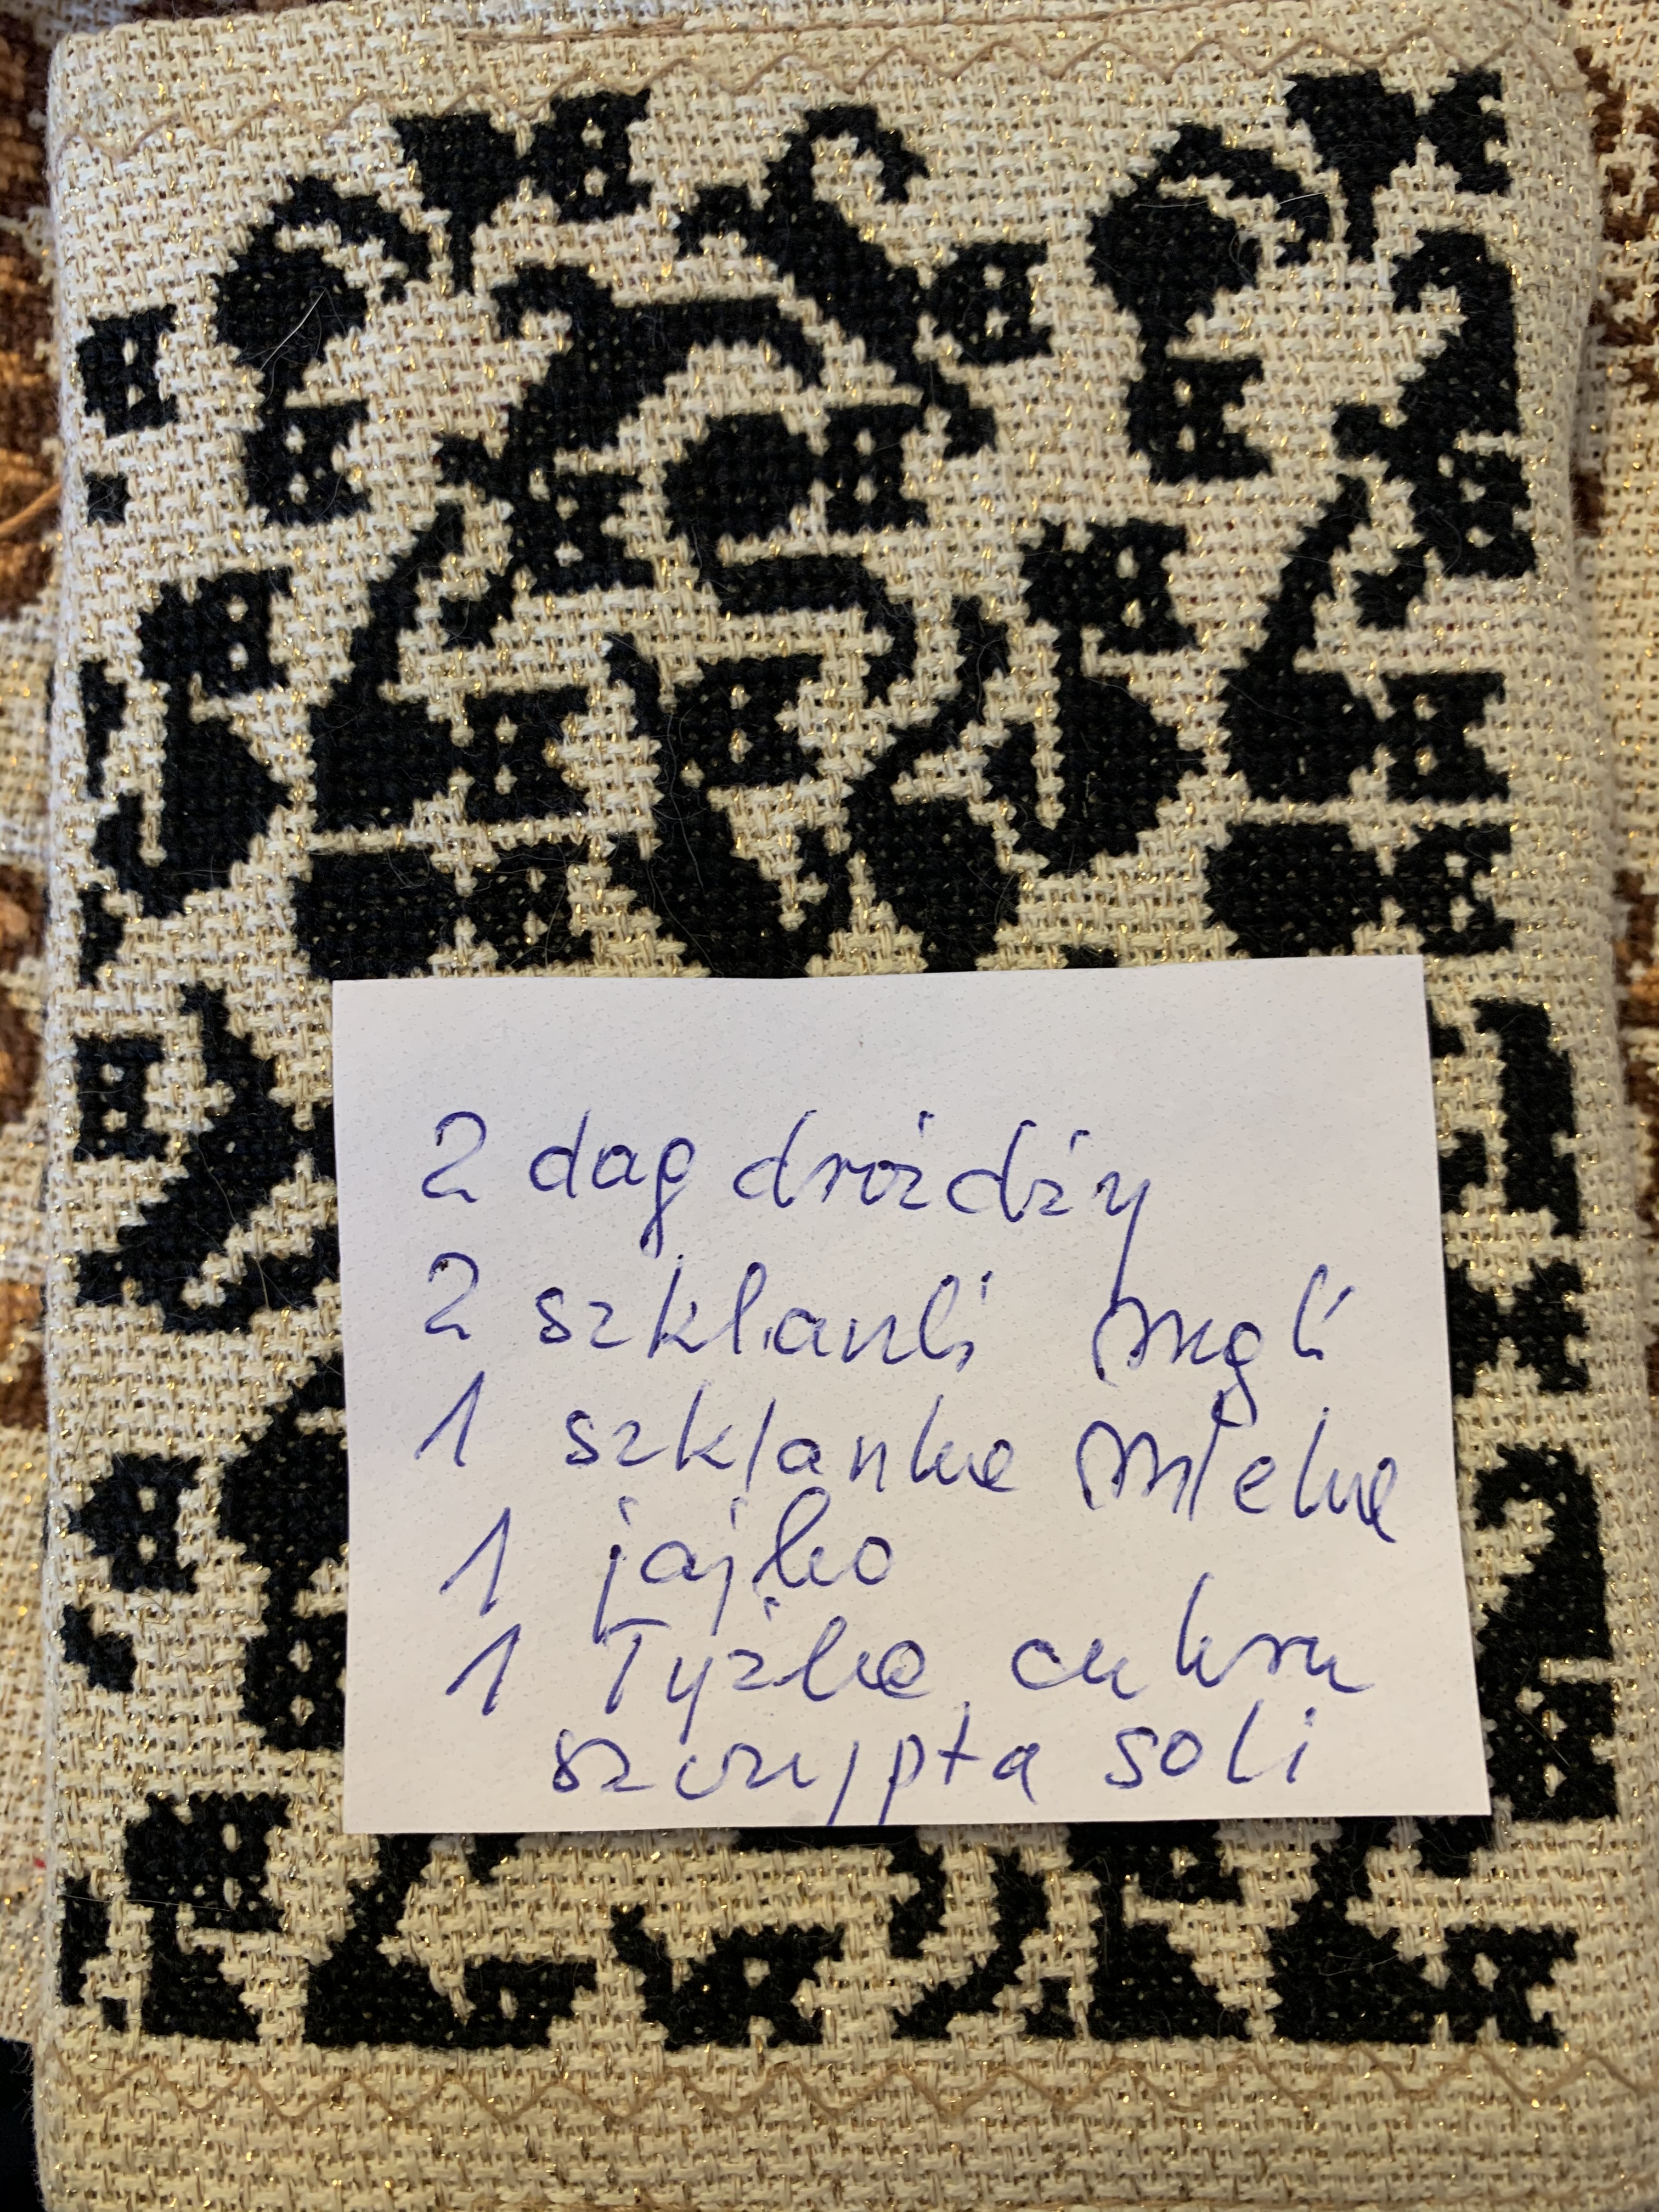 2 dag drożdży
2 szklanki mąki
1 szklanka mleka
1 jajko
1 łyżka cukru
szczypta soli